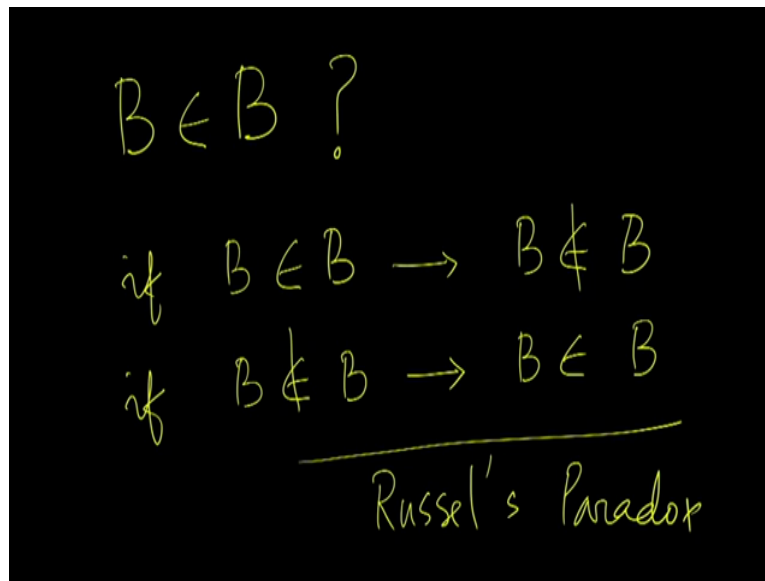 B ∈ B ?
if B ∈ B → B ∉ B
if B ∉ B → B ∈ B
Russel's Paradox